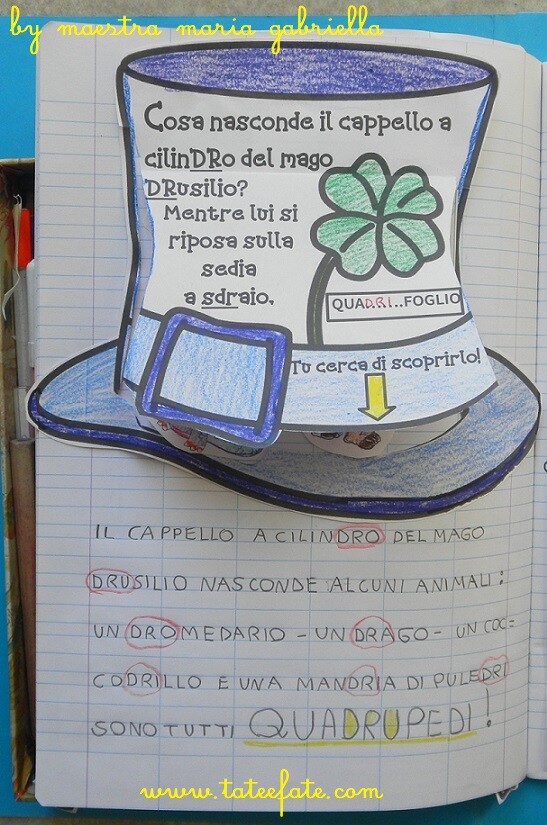 by maestra maria gabriella
Cosa nasconde il cappello a
cilinDRo del mago
DRusilio?
Mentre lui si
riposa sulla
sedia
a sdraio,
QUADRI..FOGLIO
Tu cerca di scoprirlo!
IL CAPPELLO A CILINDRO DEL MAGO
DRUSILIO NASCONDE ALCUNI ANIMALI:
UN DROMEDARIO - UN DRAGO - UN COC=
CODRILLO E UNA MANDRIA DI PULEDRI
SONO TUTTI QUADRUPEDI!
www.tateefate.com